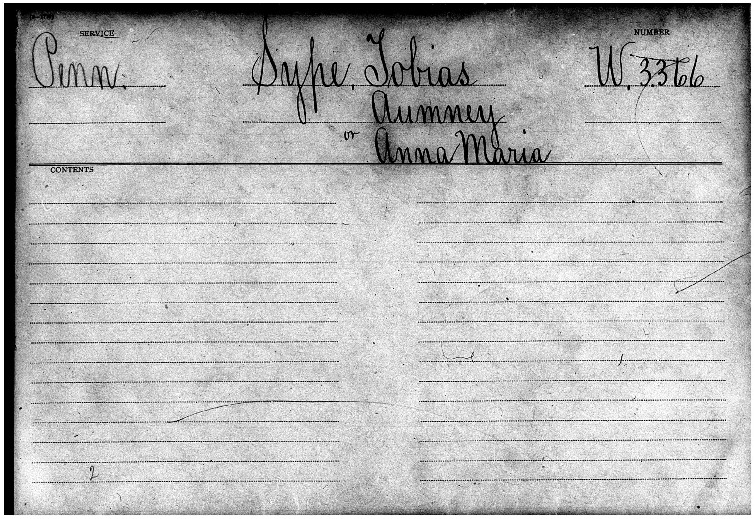 SERVICE NUMBER
Penn. Sype, Tobias W. 3366
Aumney
or Anna Maria
CONTENTS
2